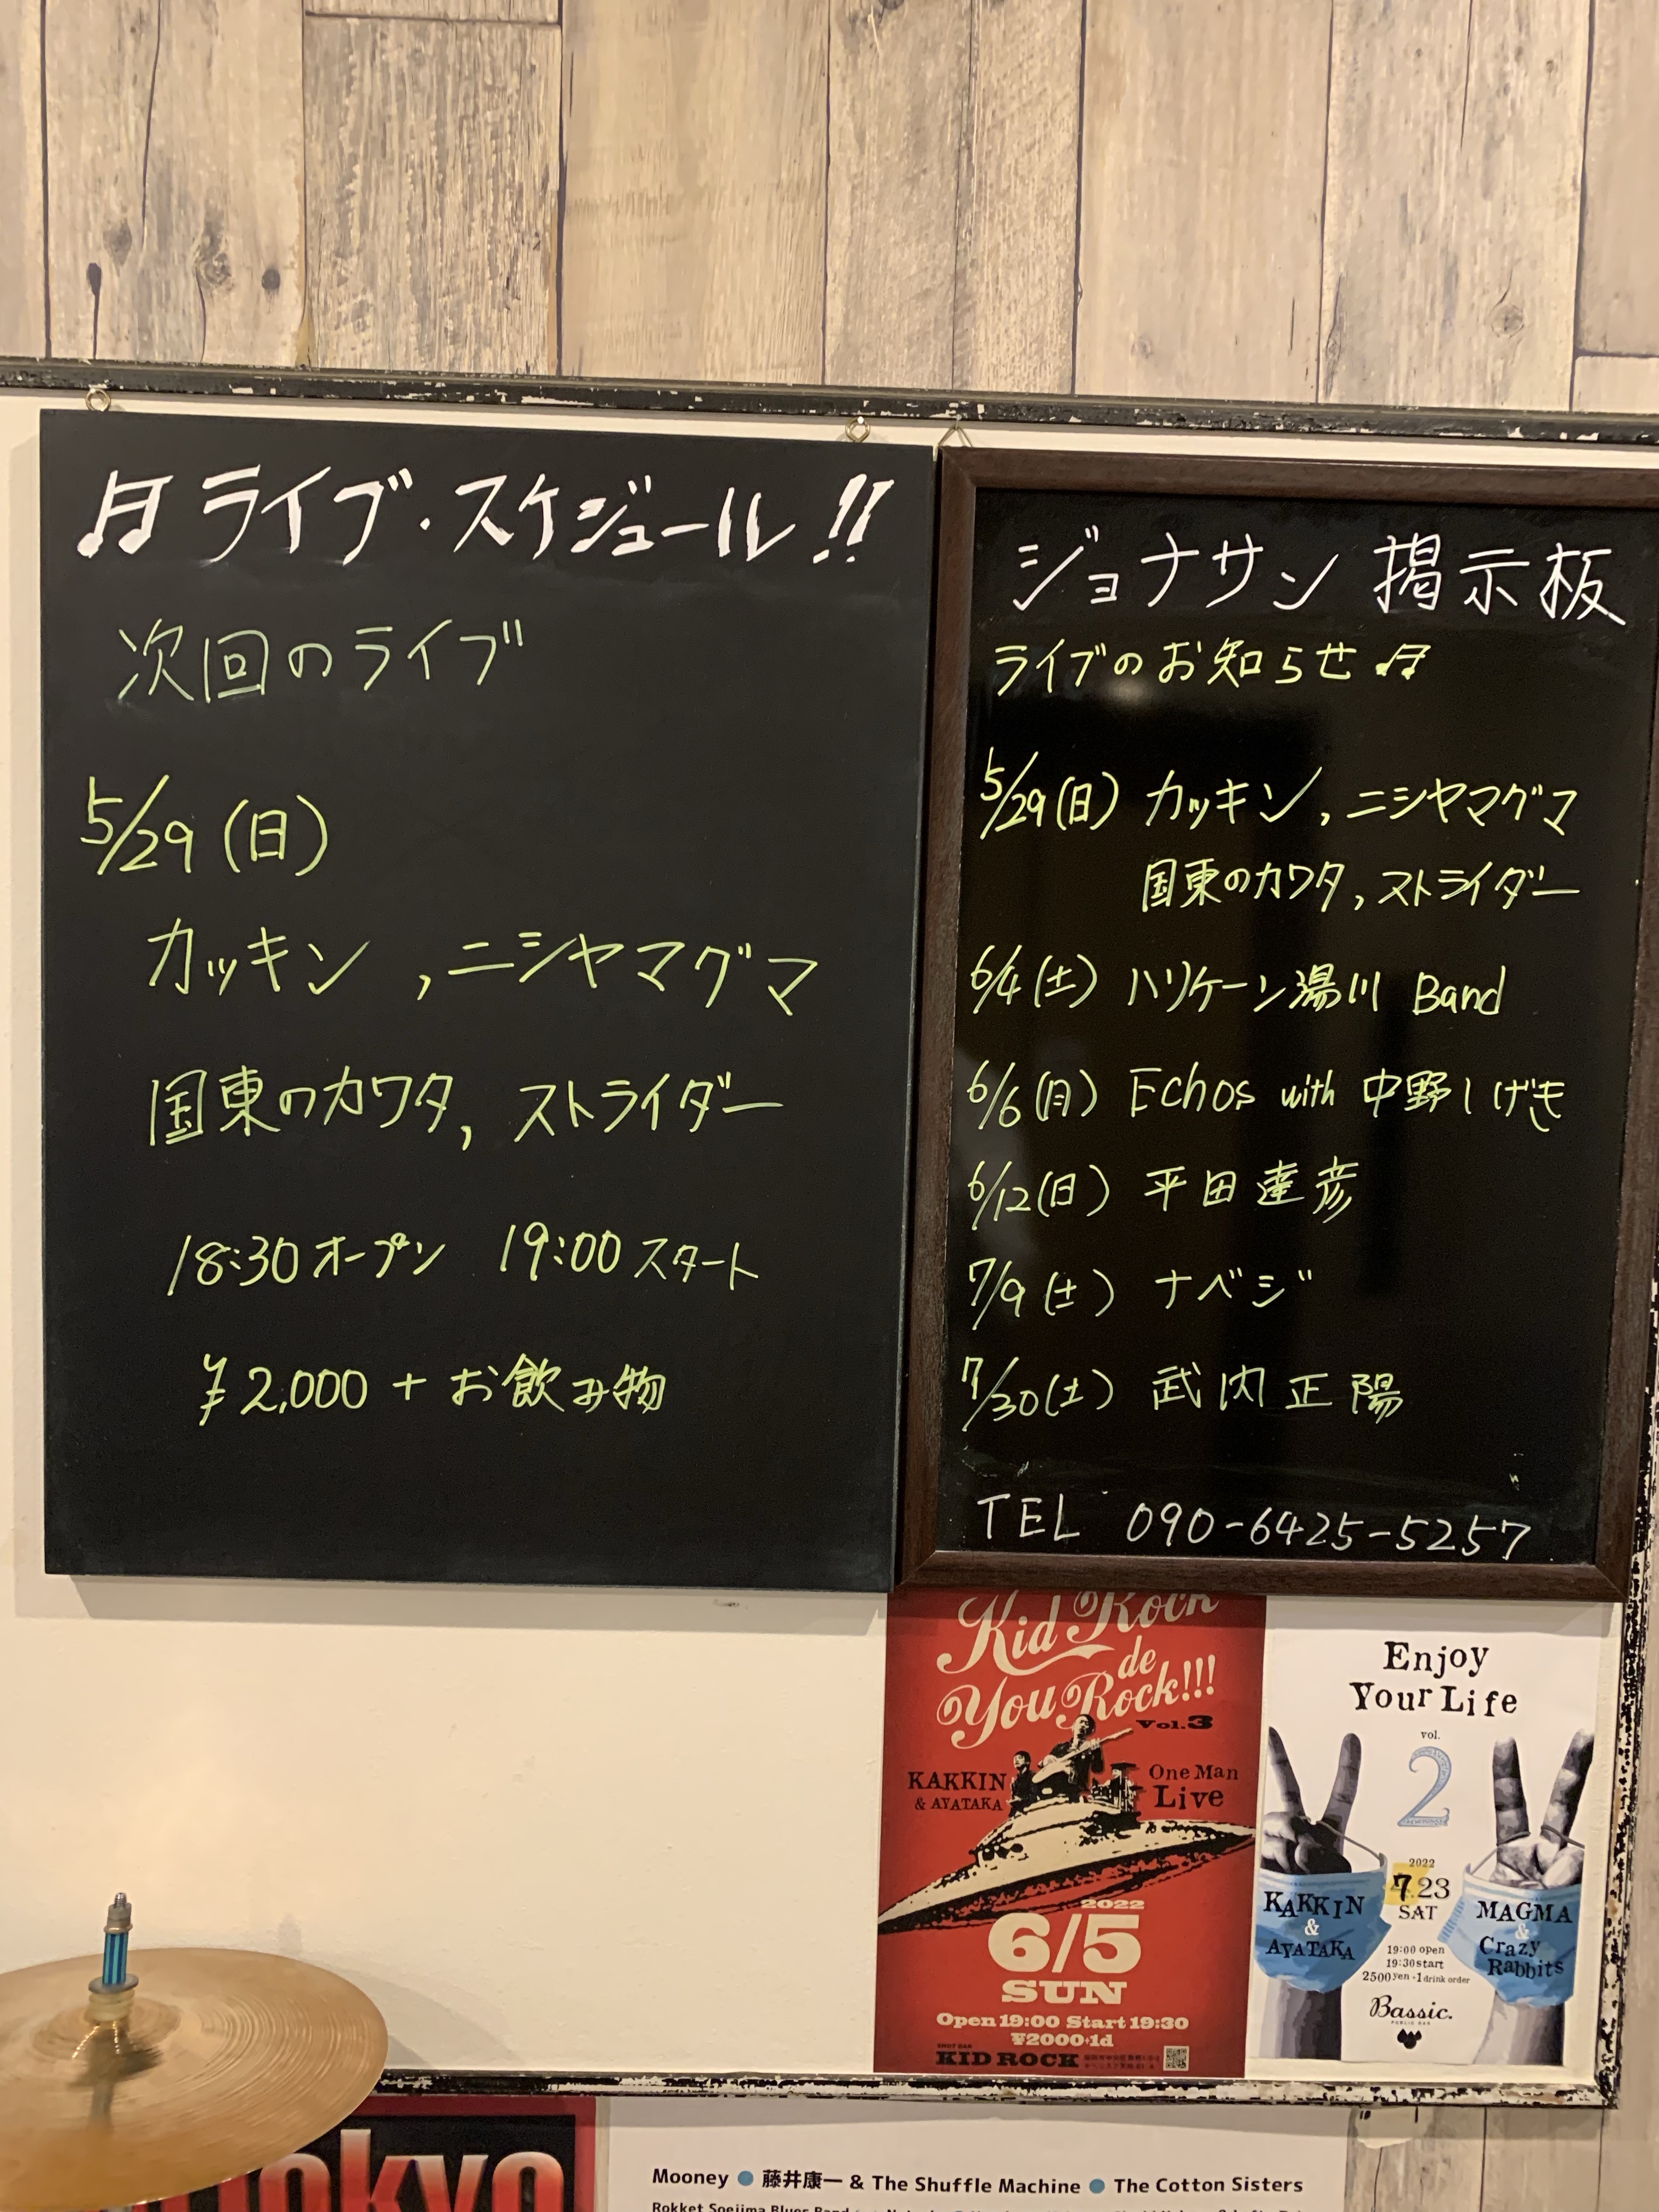 ♫ ライブ・スケジュール!!
次回のライブ
5/29(日)
カッキン,ニシヤマグマ
国東のカワタ,ストライダー
18:30オープン 19:00スタート
¥2,000+お飲み物
ジョナサン掲示板
ライブのお知らせ♫
5/29(日) カッキン,ニシヤマグマ
国東のカワタ,ストライダー
6/4(土) ハリケーン湯川 Band
6/6(月) Echos with 中野しげき
6/12(日) 平田達彦
7/9(土) ナベジ
7/30(土) 武内正陽
TEL 090-6425-5257
Kid Rock
de
You Rock!!!
Vol.3
KAKKIN
& AYATAKA
One Man
Live
2022
6/5
SUN
Open 19:00 Start 19:30
¥2000+1d
SHOT BAR
KID ROCK
Enjoy
Your Life
vol.
2
2022
7.23
SAT
KAKKIN
&
AYATAKA
MAGMA
&
Crazy
Rabbits
19:00 open
19:30 start
2500yen+1drink order
Bassic.
PUBLIC BAR
okyo
Mooney ● 藤井康一 & The Shuffle Machine ● The Cotton Sisters
Rokket Soejima Blues Band